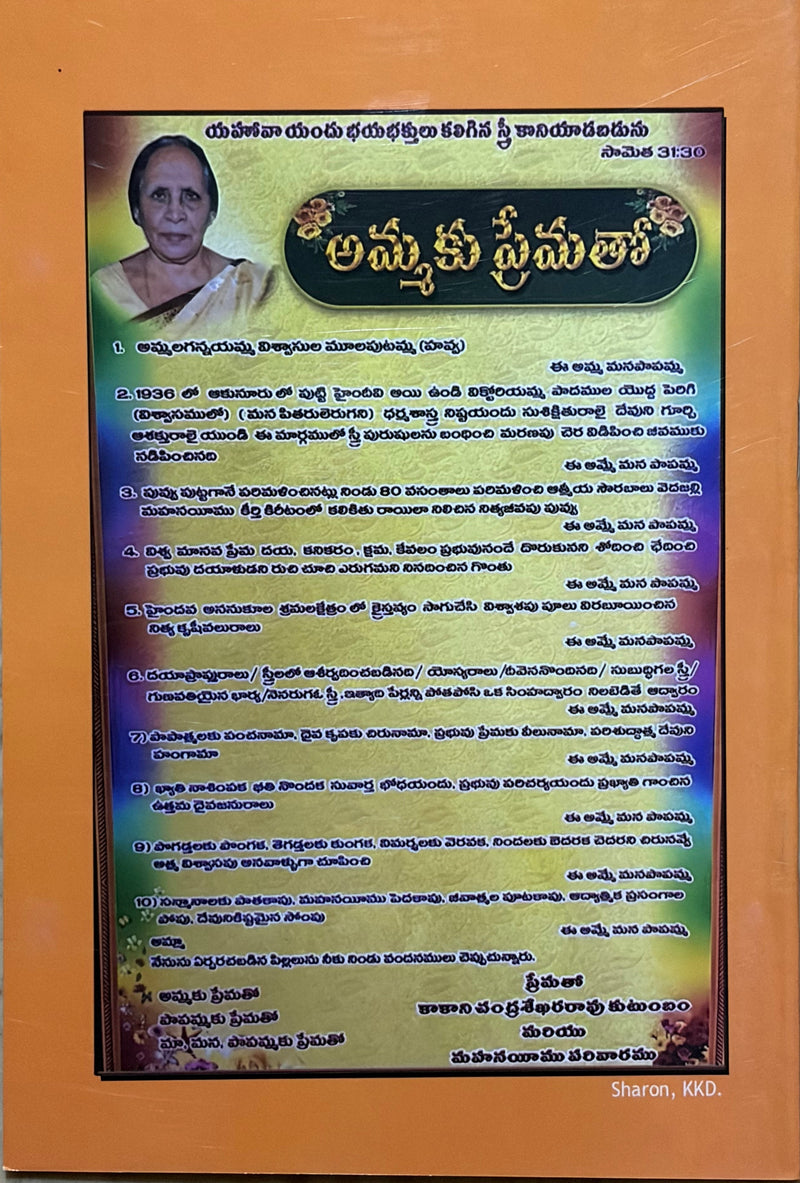 యెహోవా యందు భయభక్తులు కలిగిన స్త్రీ కొనియాడబడును
సామెత 31:30
అమ్మకు ప్రేమతో
1. అమ్మలగన్నయమ్మ విశ్వాసుల మూలపుటమ్మ (హవ్వ)
ఈ అమ్మ మనపాపమ్మ
2. 1936 లో ఆకునూరు లో పుట్టి హైందవి అయి ఉండి విక్టోరియమ్మ పాదముల యొద్ద పెరిగి
(విశ్వాసములో) (మన పితరులెరుగని) ధర్మశాస్త్ర నిష్ఠయందు సుశిక్షితురాలై దేవుని గూర్చి
ఆశక్తురాలై యుండి ఈ మార్గములో స్త్రీ పురుషులను బంధించి మరణపు చెర విడిపించి జీవముకు
నడిపించినది
ఈ అమ్మే మన పాపమ్మ
3. పువ్వు పుట్టగానే పరిమళించినట్లు నిండు 80 వసంతాలు పరిమళించి ఆత్మీయ సౌరబాలు వెదజల్లి
మహనయీము కీర్తి కిరీటంలో కలికితు రాయిలా నిలిచిన నిత్యజీవపు పువ్వు
ఈ అమ్మే మన పాపమ్మ
4. విశ్వ మానవ ప్రేమ దయ, కనికరం, క్షమ, కేవలం ప్రభువునందే దొరుకునని శోదించి ఛేదించి
ప్రభువు దయాళుడని రుచి చూచి ఎరుగమని నినదించిన గొంతు
ఈ అమ్మే మన పాపమ్మ
5. హైందవ అననుకూల శ్రమలక్షేత్రం లో క్రైస్తవ్యం సాగుచేసి విశ్వాశపు పూలు విరబూయించిన
నిత్య కృషీవలురాలు
ఈ అమ్మే మనపాపమ్మ
6. దయాప్రాప్తురాలు/ స్త్రీలలో ఆశీర్వదించబడినది/ యోగ్యురాలు /దీవెననొందినది/ సుబుద్ధిగల స్త్రీ/
గుణవతియైన భార్య/నెనరుగల స్త్రీ, ఇత్యాది పేర్లన్ని పోతపోసి ఒక సింహద్వారం నిలబెడితే ఆద్వారం
ఈ అమ్మే మన పాపమ్మ
7) పాపాత్మలకు పంచనామా, దైవ కృపకు చిరునామా, ప్రభువు ప్రేమకు వీలునామా, పరిశుద్ధాత్మ దేవుని
హంగామా
ఈ అమ్మే మన పాపమ్మ
8) ఖ్యాతి నాశింపక భతి నొందక సువార్త భోధయందు, ప్రభువు పరిచర్యయందు ప్రఖ్యాతి గాంచిన
ఉత్తమ దైవజనురాలు
ఈ అమ్మే మన పాపమ్మ
9) పొగడ్తలకు పొంగక, తెగడ్తలకు కుంగక, విమర్శలకు వెరవక, నిందలకు బెదరక చెదరని చిరునవ్వే
ఆత్మ విశ్వాసపు ఆనవాళ్ళుగా చూపించి
ఈ అమ్మే మనపాపమ్మ
10) సన్మానాలకు పాతకాపు, మహనయీము పెదకాపు, జీవాత్మల పూటకాపు, ఆధ్యాత్మిక ప్రసంగాల
పోపు, దేవునికిష్టమైన సోంపు
ఈ అమ్మే మన పాపమ్మ
అమ్మా
నేనును ఏర్పరచబడిన పిల్లలును నీకు నిండు వందనములు చెప్పుచున్నారు.
అమ్మకు ప్రేమతో
పాపమ్మకు ప్రేమతో
మా, మన, పాపమ్మకు ప్రేమతో
ప్రేమతో
కాకాని చంద్రశేఖరరావు కుటుంబం
మరియు
మహనయీము పరివారము
Sharon, KKD.